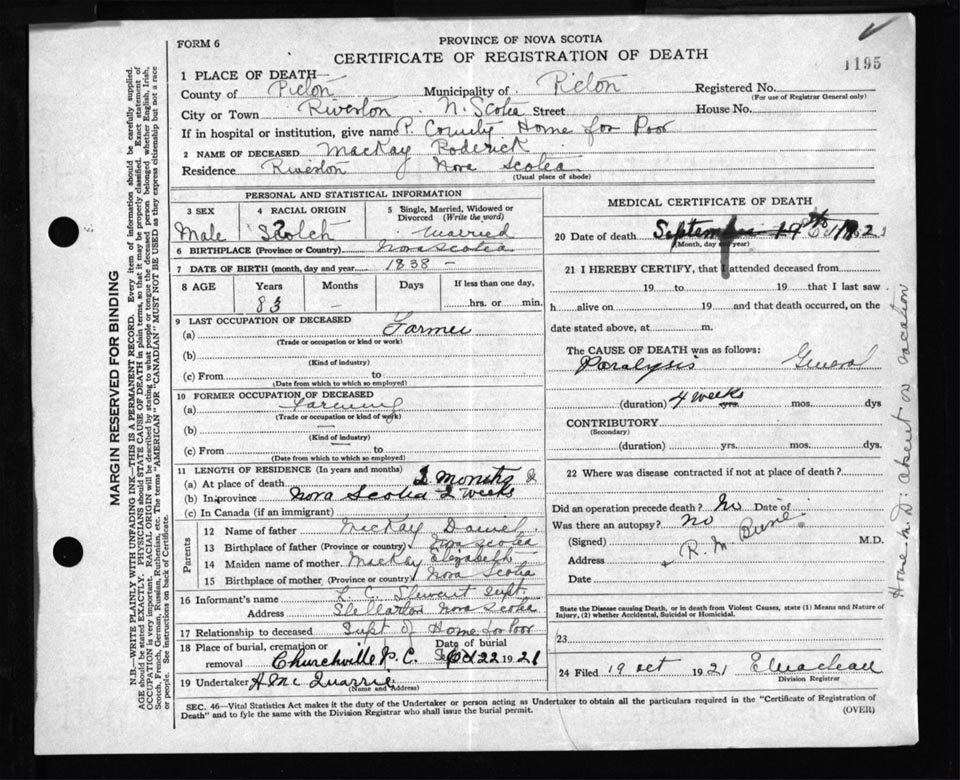 FORM 6
PROVINCE OF NOVA SCOTIA
CERTIFICATE OF REGISTRATION OF DEATH
1195
1 PLACE OF DEATH—
County of Pictou Municipality of Pictou Registered No.
(For use of Registrar General only)
City or Town Riverton N. Scotia Street House No.
If in hospital or institution, give name P. County Home for Poor
2 NAME OF DECEASED MacKay Roderick
Residence Riverton Nova Scotia
(Usual place of abode)
PERSONAL AND STATISTICAL INFORMATION
3 SEX
Male
4 RACIAL ORIGIN
Scotch
5 Single, Married, Widowed or Divorced (Write the word)
Married
6 BIRTHPLACE (Province or Country) Nova Scotia
7 DATE OF BIRTH (month, day and year) 1838 –
8 AGE Years Months Days If less than one day,
83 – hrs. or min.
9 LAST OCCUPATION OF DECEASED
(a) Farmer
(Trade or occupation or kind of work)
(b)
(Kind of industry)
(c) From to
(Date from which to which so employed)
10 FORMER OCCUPATION OF DECEASED
(a) Farming
(Trade or occupation or kind of work)
(b)
(Kind of industry)
(c) From to
(Date from which to which so employed)
11 LENGTH OF RESIDENCE (In years and months)
(a) At place of death 2 months &
(b) In province Nova Scotia 2 weeks
(c) In Canada (if an immigrant)
Parents
12 Name of father MacKay Daniel
13 Birthplace of father (Province or country) Nova Scotia
14 Maiden name of mother MacKay Elizabeth
15 Birthplace of mother (Province or country) Nova Scotia
16 Informant's name L. C. Stewart Supt.
Address Stellarton Nova Scotia
17 Relationship to deceased Supt of Home for Poor
18 Place of burial, cremation or removal Churchville P. C. Date of burial 22 1921
19 Undertaker A Mc Quarrie
(Name and Address)
MEDICAL CERTIFICATE OF DEATH
20 Date of death September 19th
(Month, day and year)
21 I HEREBY CERTIFY, that I attended deceased from
19 to 19 that I last saw
h alive on 19 and that death occurred, on the
date stated above, at m.
The CAUSE OF DEATH was as follows:
Paralysis General
(duration) 4 weeks yrs. mos. dys
CONTRIBUTORY
(Secondary)
(duration) yrs. mos. dys.
22 Where was disease contracted if not at place of death?
Did an operation precede death? No Date of
Was there an autopsy? no
(Signed) R. M. M.D.
Address
Date
Home M.D. absent on vacation
State the Disease causing Death, or in death from Violent Causes, state (1) Means and Nature of
Injury, (2) whether Accidental, Suicidal or Homicidal.
23
24 Filed 19 Oct 1921 E Maclean
Division Registrar
SEC. 46—Vital Statistics Act makes it the duty of the Undertaker or person acting as Undertaker to obtain all the particulars required in the "Certificate of Registration of
Death" and to fyle the same with the Division Registrar who shall issue the burial permit.
(OVER)
MARGIN RESERVED FOR BINDING
N.B.—WRITE PLAINLY WITH UNFADING INK—THIS IS A PERMANENT RECORD. Every item of information should be carefully supplied.
AGE should be stated EXACTLY. PHYSICIANS should STATE CAUSE OF DEATH in plain terms, so that it may be properly classified. Exact statement of
OCCUPATION is very important. RACIAL ORIGIN will be described by stating to what people or tongue the deceased person belonged whether English, Irish,
Scotch, French, German, Russian, Ruthenian, etc. The terms "AMERICAN" or "CANADIAN" MUST NOT BE USED as they express citizenship but not a race
or people. See instructions on back of Certificate.